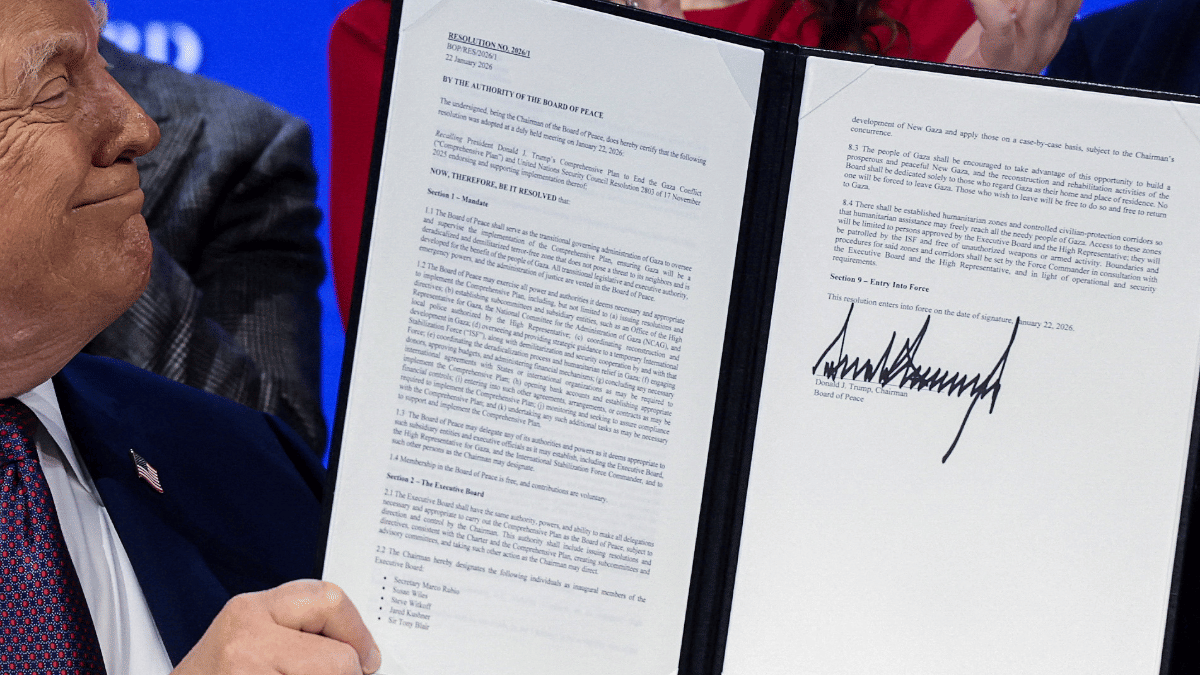 RESOLUTION NO. 2026/1
BOP/RES/2026/1
22 January 2026
BY THE AUTHORITY OF THE BOARD OF PEACE
The undersigned, being the Chairman of the Board of Peace, does hereby certify that the following
resolution was adopted at a duly held meeting on January 22, 2026:
Recalling President Donald J. Trump's Comprehensive Plan to End the Gaza Conflict
("Comprehensive Plan") and United Nations Security Council Resolution 2803 of 17 November
2025 endorsing and supporting implementation thereof;
NOW, THEREFORE, BE IT RESOLVED that:
Section 1 – Mandate
1.1 The Board of Peace shall serve as the transitional governing administration of Gaza to oversee
and supervise the implementation of the Comprehensive Plan, ensuring Gaza will be a
deradicalized and demilitarized terror-free zone that does not pose a threat to its neighbors and is
developed for the benefit of the people of Gaza. All transitional legislative and executive authority,
emergency powers, and the administration of justice are vested in the Board of Peace.
1.2 The Board of Peace may exercise all power and authorities it deems necessary and appropriate
to implement the Comprehensive Plan, including, but not limited to (a) issuing resolutions and
directives; (b) establishing subcommittees and subsidiary entities, such as an Office of the High
Representative for Gaza, the National Committee for the Administration of Gaza (NCAG), and
local police authorized by the High Representative; (c) coordinating reconstruction and
development in Gaza; (d) overseeing and providing strategic guidance to a temporary International
Stabilization Force ("ISF"), along with demilitarization and security cooperation by and with that
Force; (e) coordinating the deradicalization process and humanitarian relief in Gaza; (f) engaging
donors, approving budgets, and administering financial mechanisms; (g) concluding any necessary
international agreements with States or international organizations as may be required to
implement the Comprehensive Plan; (h) opening bank accounts and establishing appropriate
financial controls; (i) entering into such other agreements, arrangements, or contracts as may be
required to implement the Comprehensive Plan; (j) monitoring and seeking to assure compliance
with the Comprehensive Plan, and (k) undertaking any such additional tasks as may be necessary
to support and implement the Comprehensive Plan.
1.3 The Board of Peace may delegate any of its authorities and powers as it deems appropriate to
such subsidiary entities and executive officials as it may establish, including the Executive Board,
the High Representative for Gaza, and the International Stabilization Force Commander, and to
such other persons as the Chairman may designate.
1.4 Membership in the Board of Peace is free, and contributions are voluntary.
Section 2 – The Executive Board
2.1 The Executive Board shall have the same authority, powers, and ability to make all delegations
necessary and appropriate to carry out the Comprehensive Plan as the Board of Peace, subject to
direction and control by the Chairman. This authority shall include issuing resolutions and
directives, consistent with the Charter and the Comprehensive Plan, creating subcommittees and
advisory committees, and taking such other action as the Chairman may direct.
2.2 The Chairman hereby designates the following individuals as inaugural members of the
Executive Board:
• Secretary Marco Rubio
• Susan Wiles
• Steve Witkoff
• Jared Kushner
• Sir Tony Blair
development of New Gaza and apply those on a case-by-case basis, subject to the Chairman's
concurrence.
8.3 The people of Gaza shall be encouraged to take advantage of this opportunity to build a
prosperous and peaceful New Gaza, and the reconstruction and rehabilitation activities of the
Board shall be dedicated solely to those who regard Gaza as their home and place of residence. No
one will be forced to leave Gaza. Those who wish to leave will be free to do so and free to return
to Gaza.
8.4 There shall be established humanitarian zones and controlled civilian-protection corridors so
that humanitarian assistance may freely reach all the needy people of Gaza. Access to these zones
will be limited to persons approved by the Executive Board and the High Representative; they will
be patrolled by the ISF and free of unauthorized weapons or armed activity. Boundaries and
procedures for said zones and corridors shall be set by the Force Commander in consultation with
the Executive Board and the High Representative, and in light of operational and security
requirements.
Section 9 – Entry Into Force
This resolution enters into force on the date of signature, January 22, 2026.
Donald J. Trump, Chairman
Board of Peace